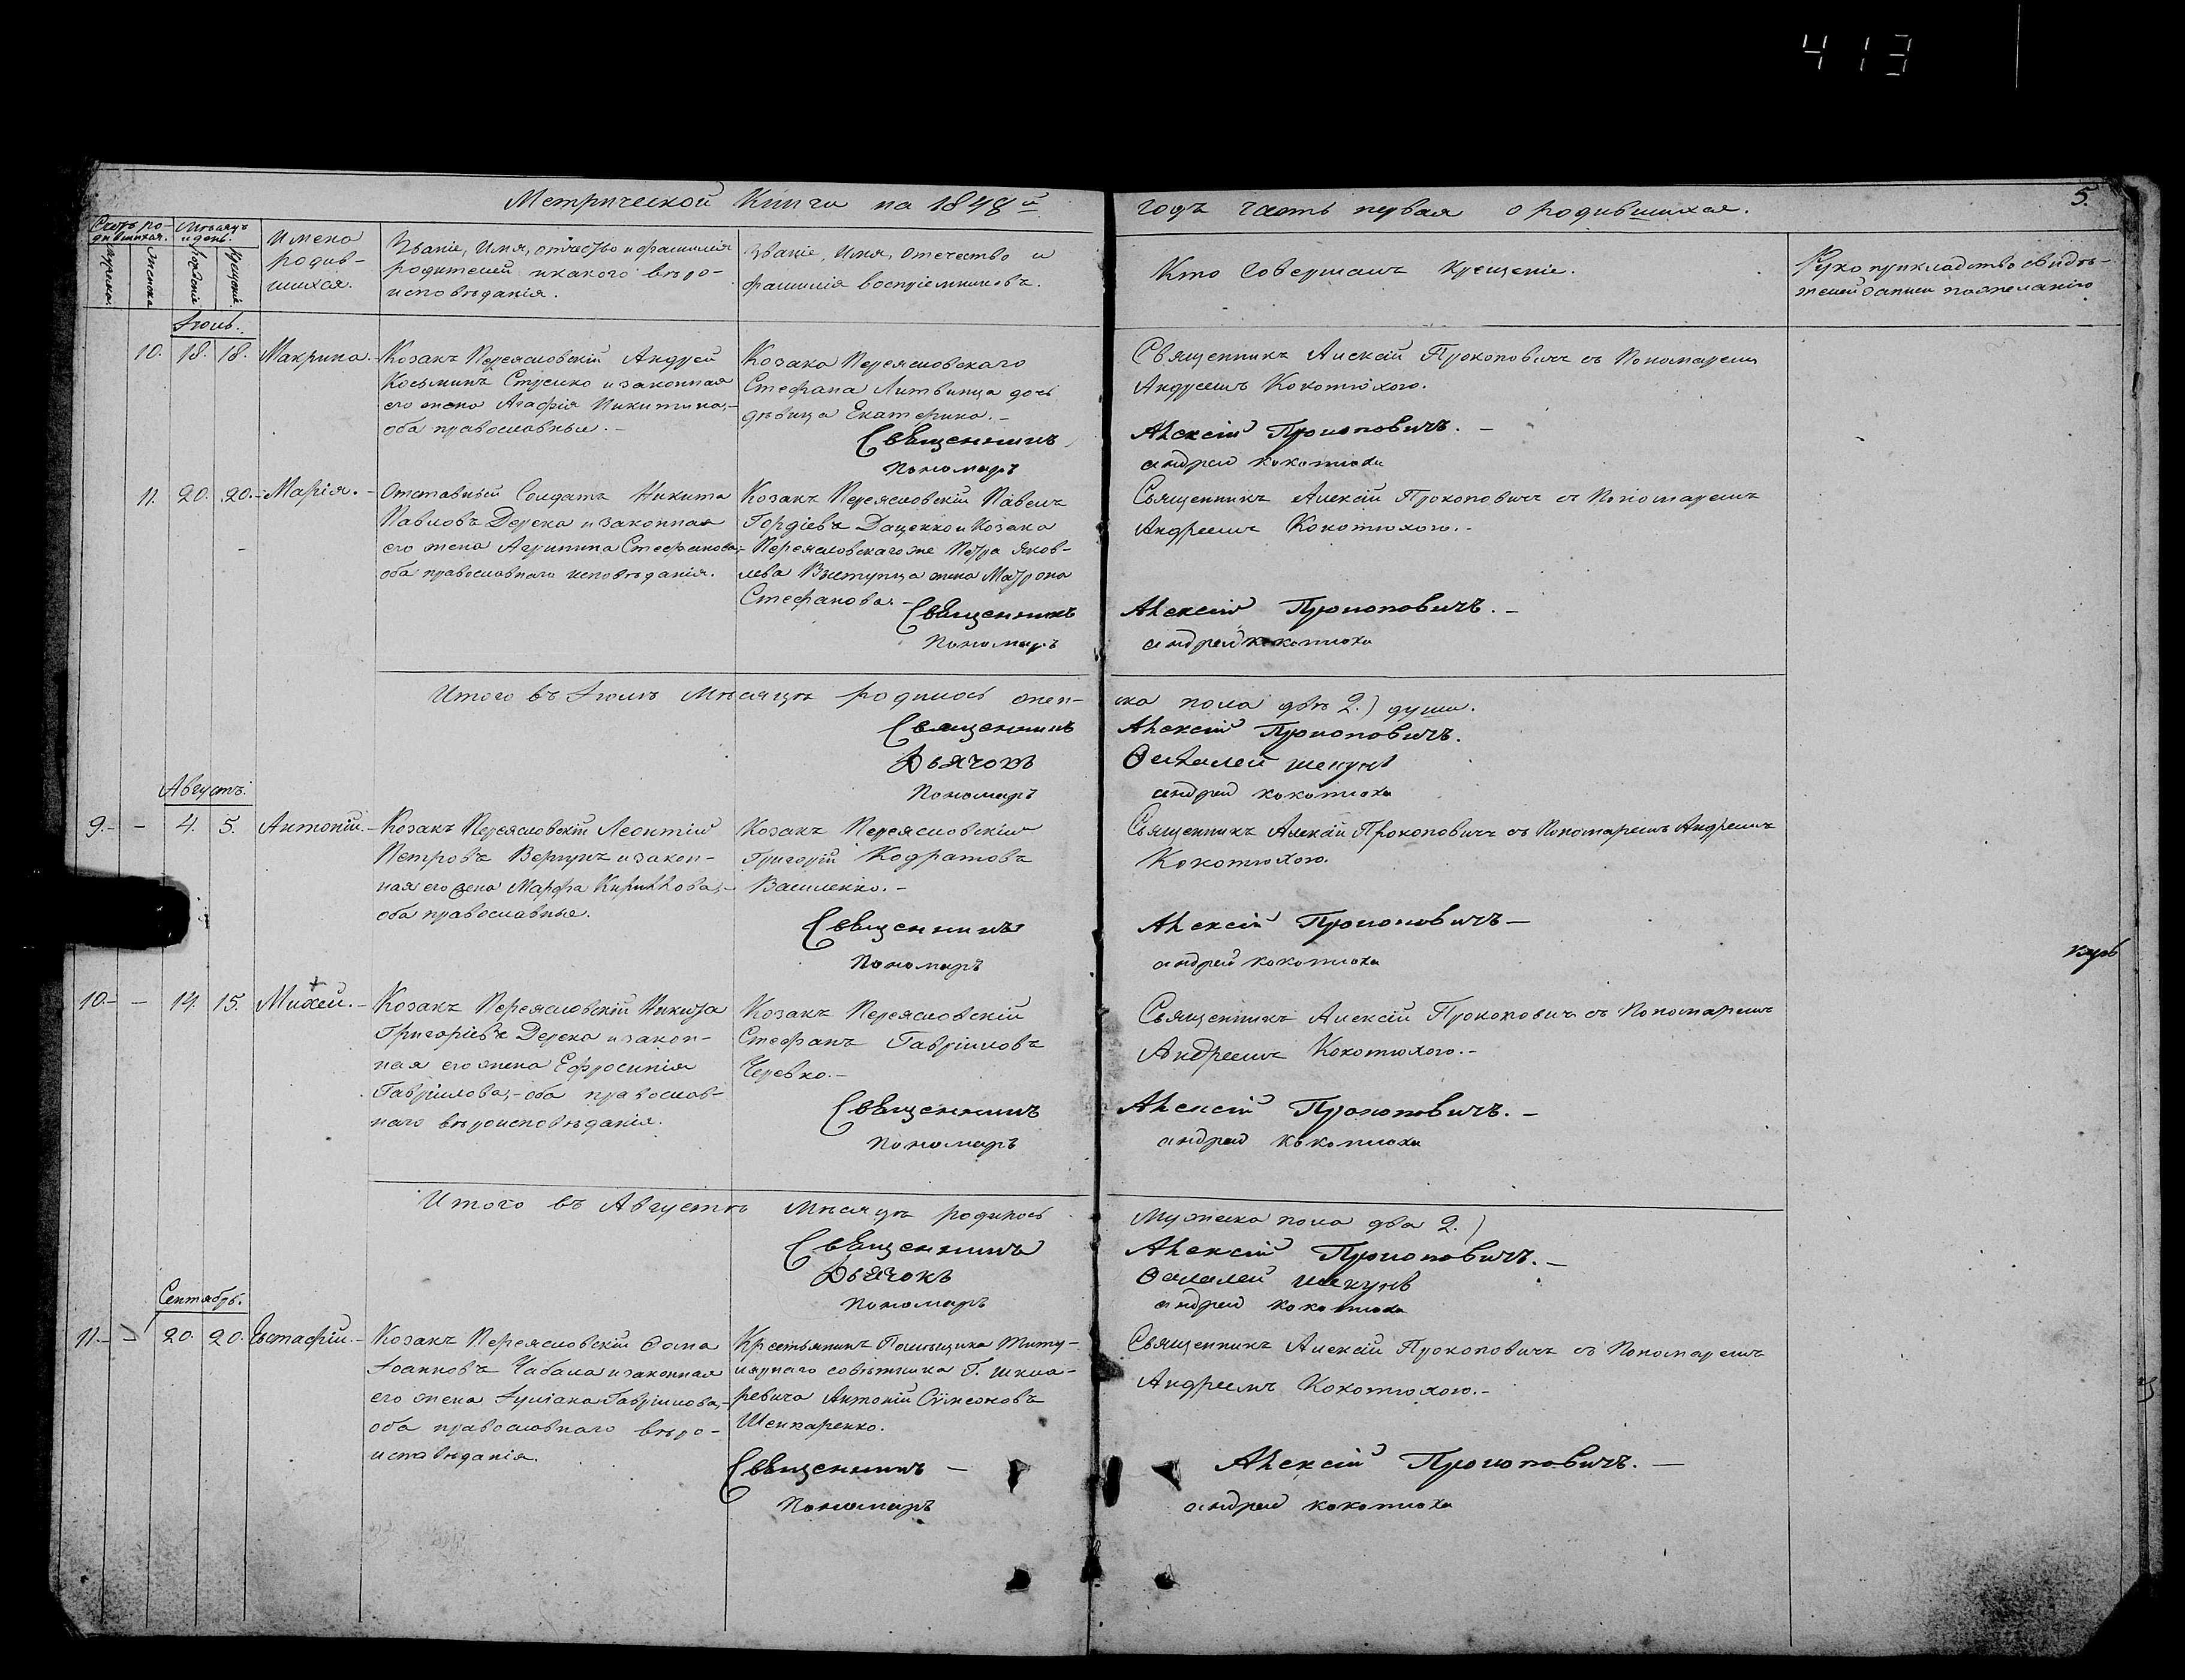 413
5.
Метрической Книги на 1848й годъ часть первая о родившихся.
Счетъ ро-
дившихся.
Мѣсяцъ
и день.
Мужеска.
Женска
Рожденія
Крещенія
Имена
родив-
шихся.
Званіе, Имя, отчество и фамилія
родителей и какого вѣро-
исповѣданія.
Званіе, Имя, Отечество и
фамилія воспріемниковъ.
Кто Совершалъ Крещеніе.
Рукоприкладство свидѣ-
телей записи по желанію
Іюль.
10. 18. 18. Макрина.
Козакъ Переясловскій Андрей
Косьминъ Стуско и законная
его жена Агафія Никитина,-
оба православные.-
Козака Переясловскаго
Стефана Литвинца дочь
дѣвица Екатерина.-
Священникъ Алексій Прокоповичъ съ Пономаремъ
Андреемъ Кокотюхою.
Священникъ Алексій Прокоповичъ.-
Пономарь андрей кокотюха
11. 20. 20.- Марія.-
Отставный Солдатъ Никита
Павловъ Дерека и законная
его жена Агрипина Стефанова,-
оба православнаго исповѣданія.
Козакъ Переясловскій Павелъ
Гордіевъ Даценко и Козака
Переясловскаго же Петра Яков-
лева жена Матрона
Стефанова.-
Священникъ Алексій Прокоповичъ съ Пономаремъ
Андреемъ Кокотюхою.-
Священникъ Алексій Прокоповичъ.-
Пономарь андрей кокотюха
Итого въ Іюлѣ Мѣсяцѣ родилось жен-ска пола двѣ 2.) души.
Священникъ Алексій Прокоповичъ.
Дьячокъ Фалалей шекунъ
Пономарь андрей кокотюха
Августъ.
9.- - 4. 5. Антоній.-
Козакъ Переясловскій Леонтій
Петровъ Вергунъ и закон-
ная его жена Марфа Кириллова,-
оба православные.
Козакъ Переясловскій
Григорій Кодратовъ
Василенко.-
Священникъ Алексій Прокоповичъ съ Пономаремъ Андреемъ
Кокотюхою.
Священникъ Алексій Прокоповичъ-
Пономарь андрей кокотюха
10.- - 14. 15. Михей.-
Козакъ Переясловскій Никита
Григоріевъ Дерека и закон-
ная его жена Ефросинія
Гавріилова,- оба православ-
наго вѣроисповѣданія.
Козакъ Переясловскій
Стефанъ Гавріиловъ
Черевко.-
Священникъ Алексій Прокоповичъ съ Пономаремъ
Андреемъ Кокотюхою.-
Священникъ Алексій Прокоповичъ.-
Пономарь андрей кокотюха
Итого въ Августѣ Мѣсяцѣ родилось Мужеска пола два 2.)
Священникъ Алексій Прокоповичъ.-
Дьячокъ Фалалей шекунъ
Пономарь андрей кокотюха
Сентябрь.
11.- - 20. 20. Евстафій.-
Козакъ Переясловскій Фома
Іоанновъ Чабала и законная
его жена Іуліана Гавріилова,-
оба православнаго вѣро-
исповѣданія.
Крестьянинъ Помѣщика Титу-
лярнаго совѣтника Г. шкля-
ревича Антоній Сѵмеоновъ
Шенкаренко.
Священникъ Алексій Прокоповичъ съ Пономаремъ
Андреемъ Кокотюхою.-
Священникъ - Алексій Прокоповичъ.-
Пономарь андрей кокотюха